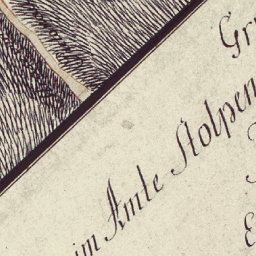 Gr
im Amte Stolpen